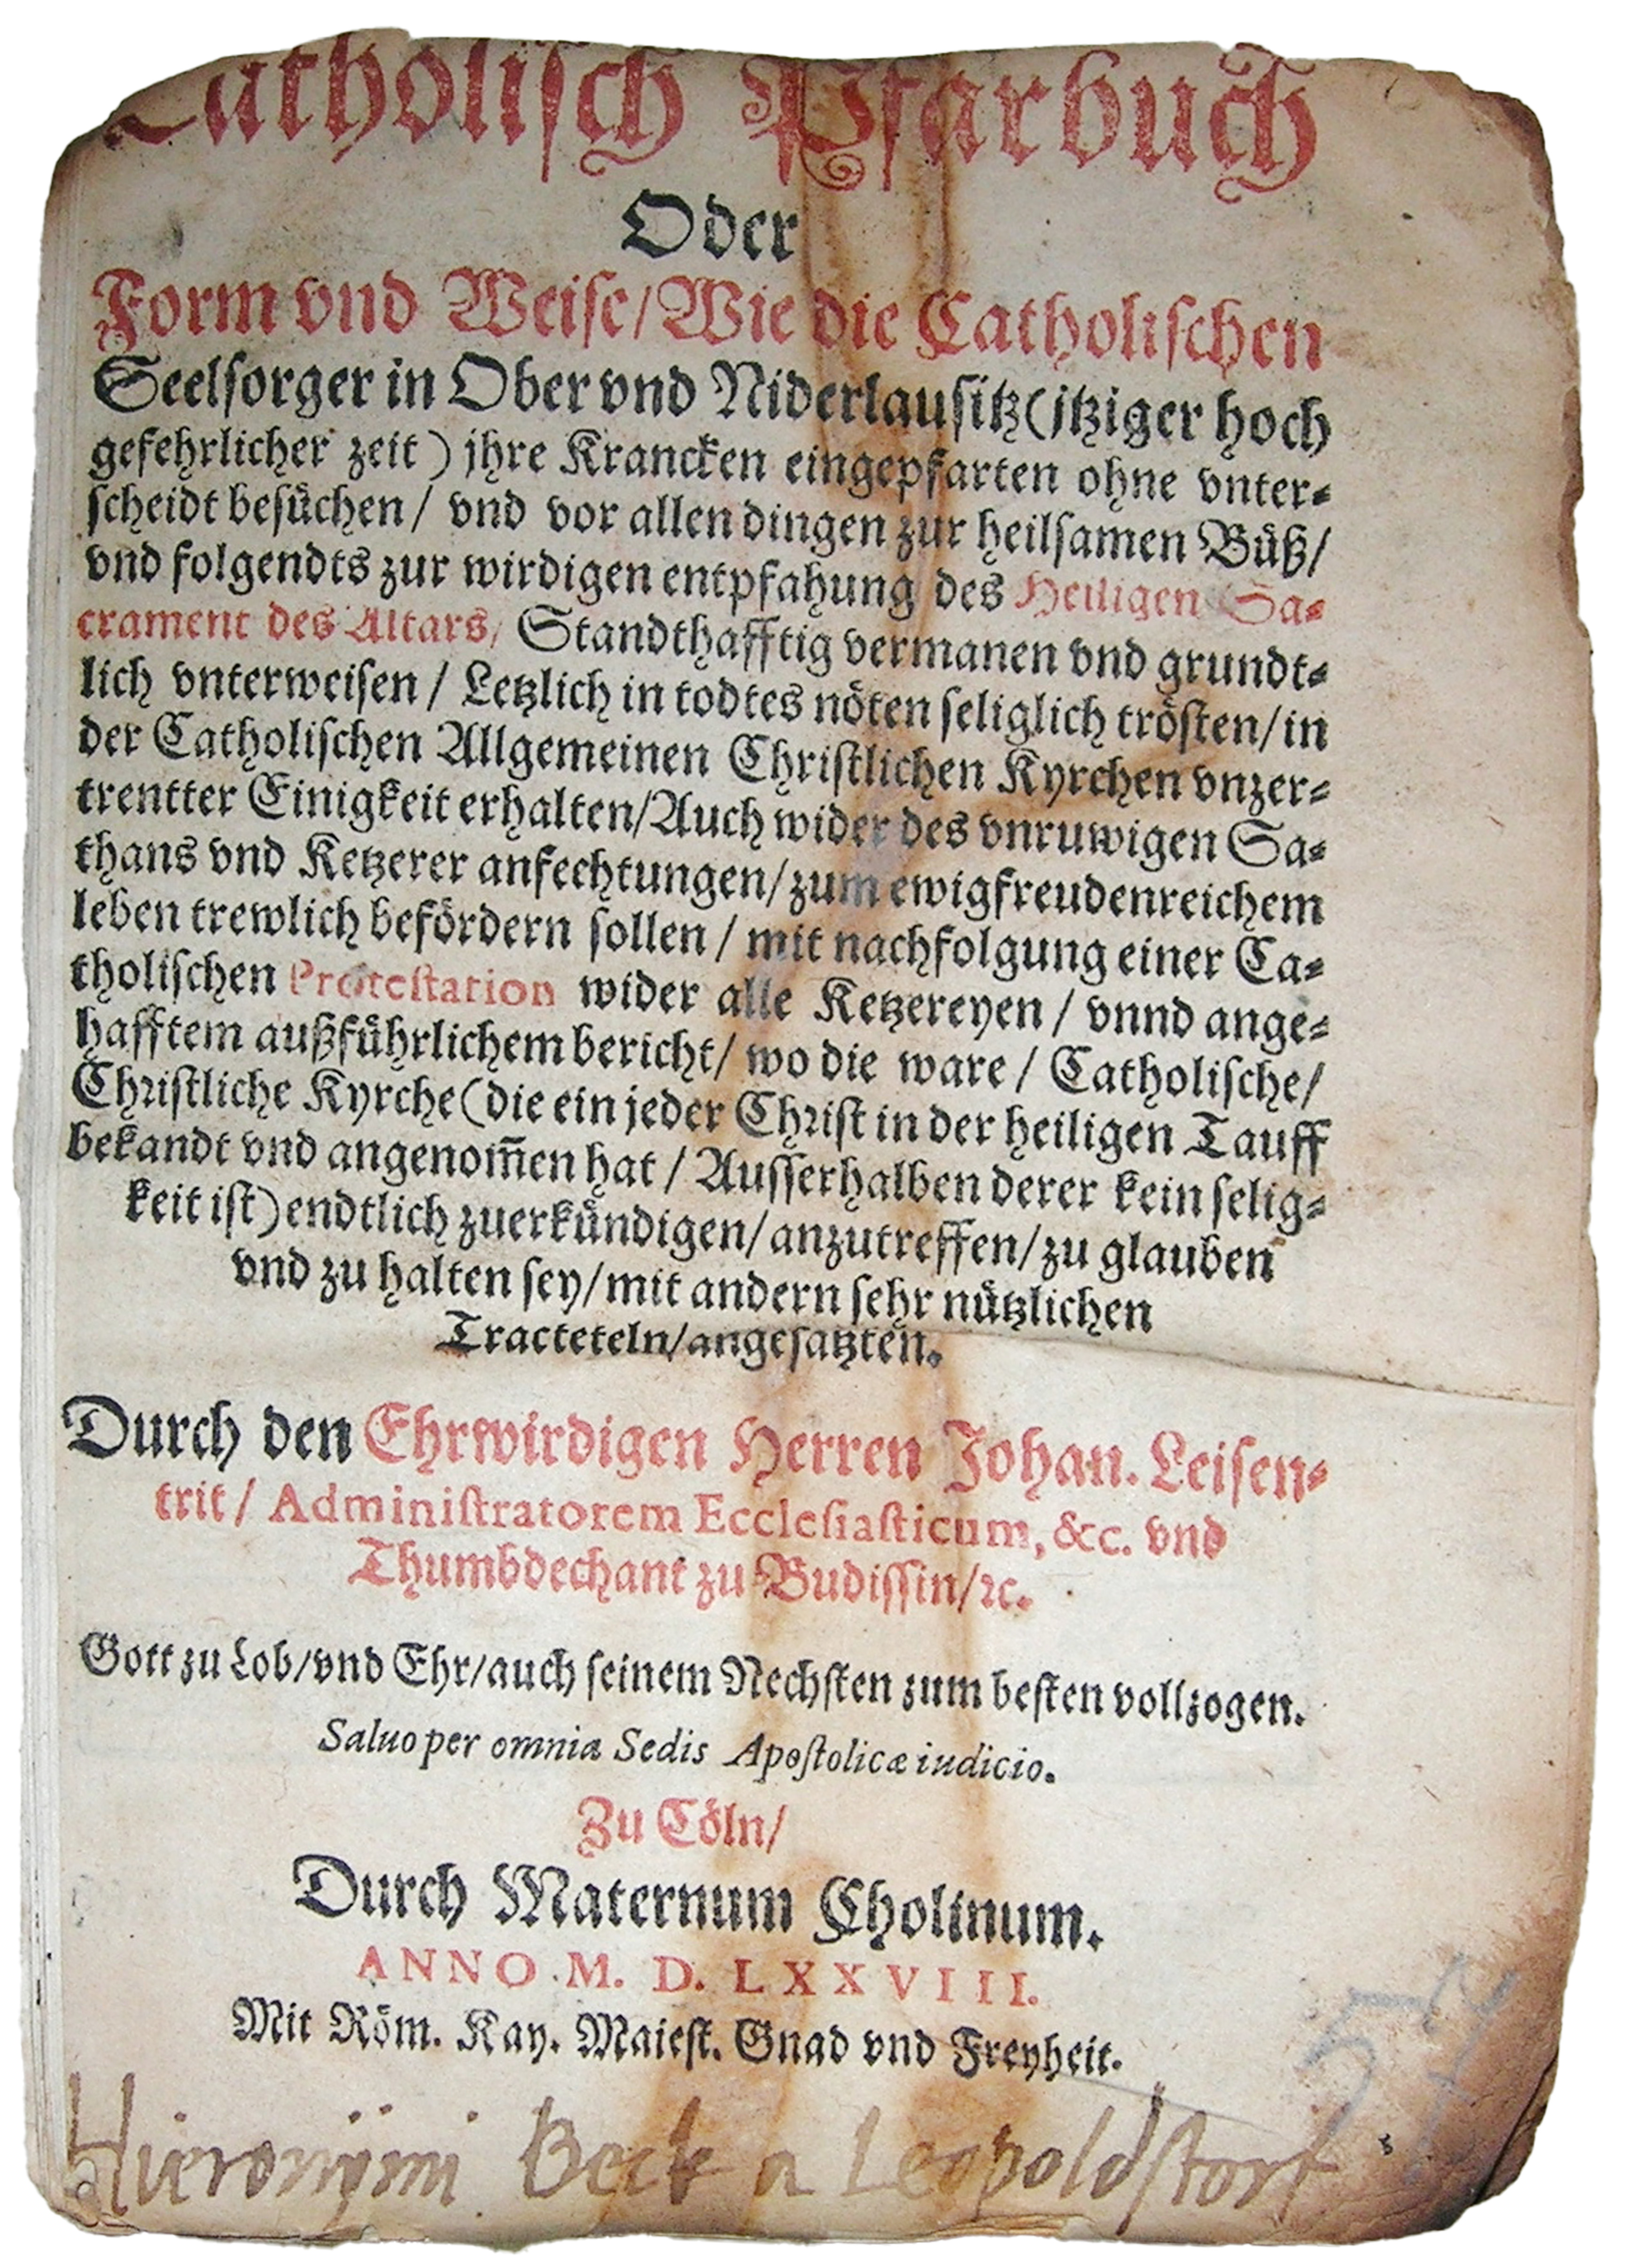 Catholisch Pfarbuch
Oder
Form vnd Weise/Wie die Catholischen
Seelsorger in Ober vnd Niderlausitz(itziger hoch
gefehrlicher zeit) jhre Krancken eingepfarten ohne vnter-
scheidt besuͤchen/ vnd vor allen dingen zur heilsamen Buͤß/
vnd folgendts zur wirdigen entpfahung des Heiligen Sa-
crament des Altars/ Standthafftig vermanen vnd grundt-
lich vnterweisen / Letzlich in todtes noͤten seliglich troͤsten/in
der Catholischen Allgemeinen Christlichen Kyrchen vnzer-
trentter Einigkeit erhalten/Auch wider des vnruwigen Sa-
thans vnd Ketzerer anfechtungen/zum ewigfreudenreichem
leben trewlich befoͤrdern sollen / mit nachfolgung einer Ca-
tholischen Protestation wider alle Ketzereyen / vnnd ange-
hafftem außfuͤhrlichem bericht/ wo die ware / Catholische/
Christliche Kyrche(die ein jeder Christ in der heiligen Tauff
bekandt vnd angenom̃en hat / Ausserhalben derer kein selig-
keit ist)endtlich zuerkuͤndigen/anzutreffen/zu glauben
vnd zu halten sey/mit andern sehr nuͤtzlichen
Tracteteln/angesatzten.
Durch den Ehrwirdigen Herren Johan. Leisen-
trit/ Administratorem Ecclesiasticum, &c. vnd
Thumbdechant zu Budissin/ꝛc.
Gott zu Lob/vnd Ehr/auch seinem Nechsten zum besten vollzogen.
Saluo per omnia Sedis Apostolicæ iudicio.
Zu Coͤln/
Durch Maternum Cholinum.
ANNO M. D. LXXVIII.
Mit Roͤm. Kay. Maiest. Gnad vnd Freyheit.
Hieronÿmi Beck a Leopoldstorf